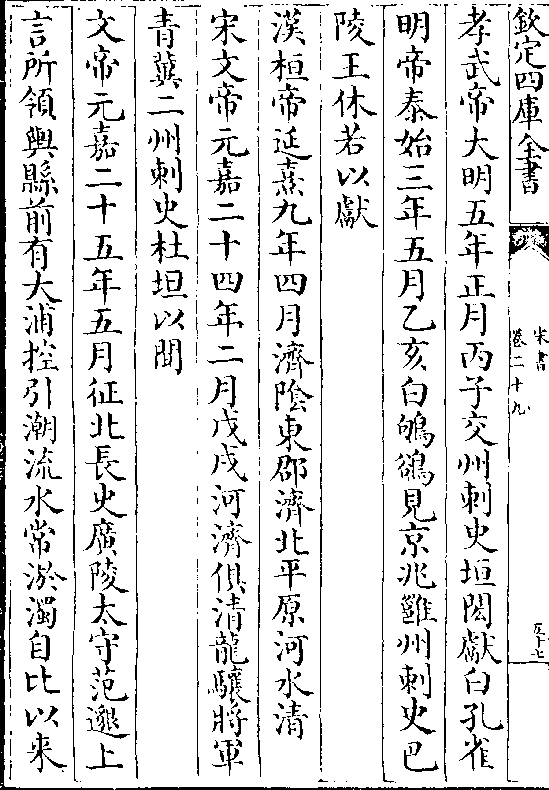 欽定四庫全書
宋書
卷二十九
五十七
孝武帝大明五年正月丙子交州刺史垣閎獻白孔雀
明帝泰始三年五月乙亥白鴝鵒見京兆雝州刺史巴
陵王休若以獻
漢桓帝延熹九年四月濟陰東郡濟北平原河水清
宋文帝元嘉二十四年二月戊戌河濟俱清龍驤將軍
青冀二州刺史杜坦以聞
文帝元嘉二十五年五月征北長史廣陵太守范邈上
言所領輿縣前有大浦控引潮流水常淤濁自比以来